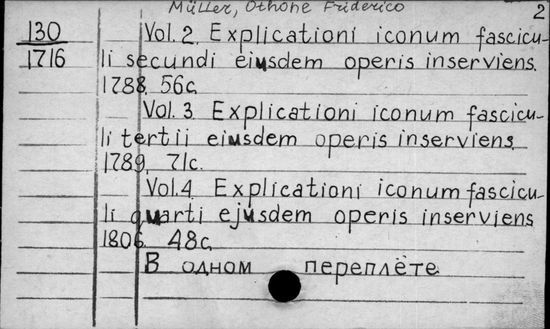 Müller, Othone Friderico
2
130
1716
Vol. 2. Explicationi iconum fascicu-
li secundi eiusdem operis inserviens.
1788. 56c.
Vol. 3. Explicationi iconum fascicu-
li tertii eiusdem operis inserviens.
1789. 71c.
Vol. 4. Explicationi iconum fascicu-
li quarti ejusdem operis inserviens
1806. 48c.
В одном переплёте.